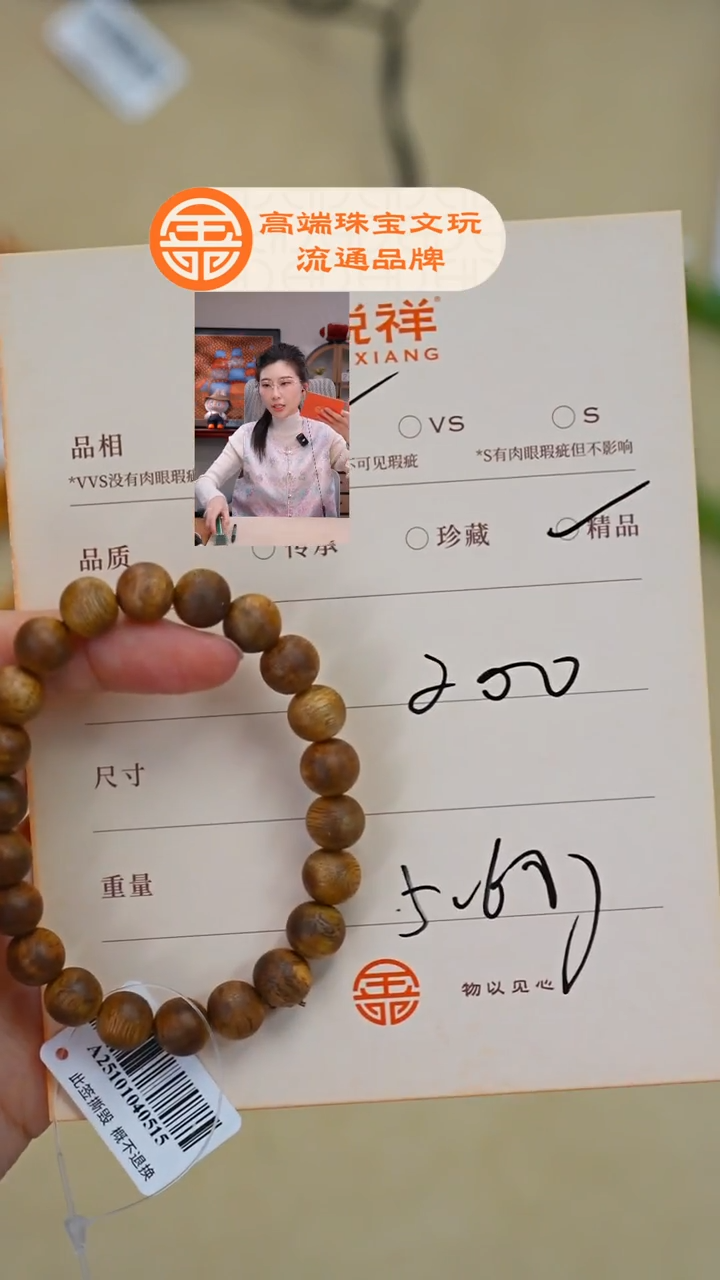 高端珠宝文玩
流通品牌
悦祥
XIANG
品相
VS
S
*VVS没有肉眼瑕疵
不可见瑕疵
*S有肉眼瑕疵但不影响
品质
传承
珍藏
精品
200
尺寸
重量
5.69g
物以见心
A25101040515
此签撕毁 概不退换